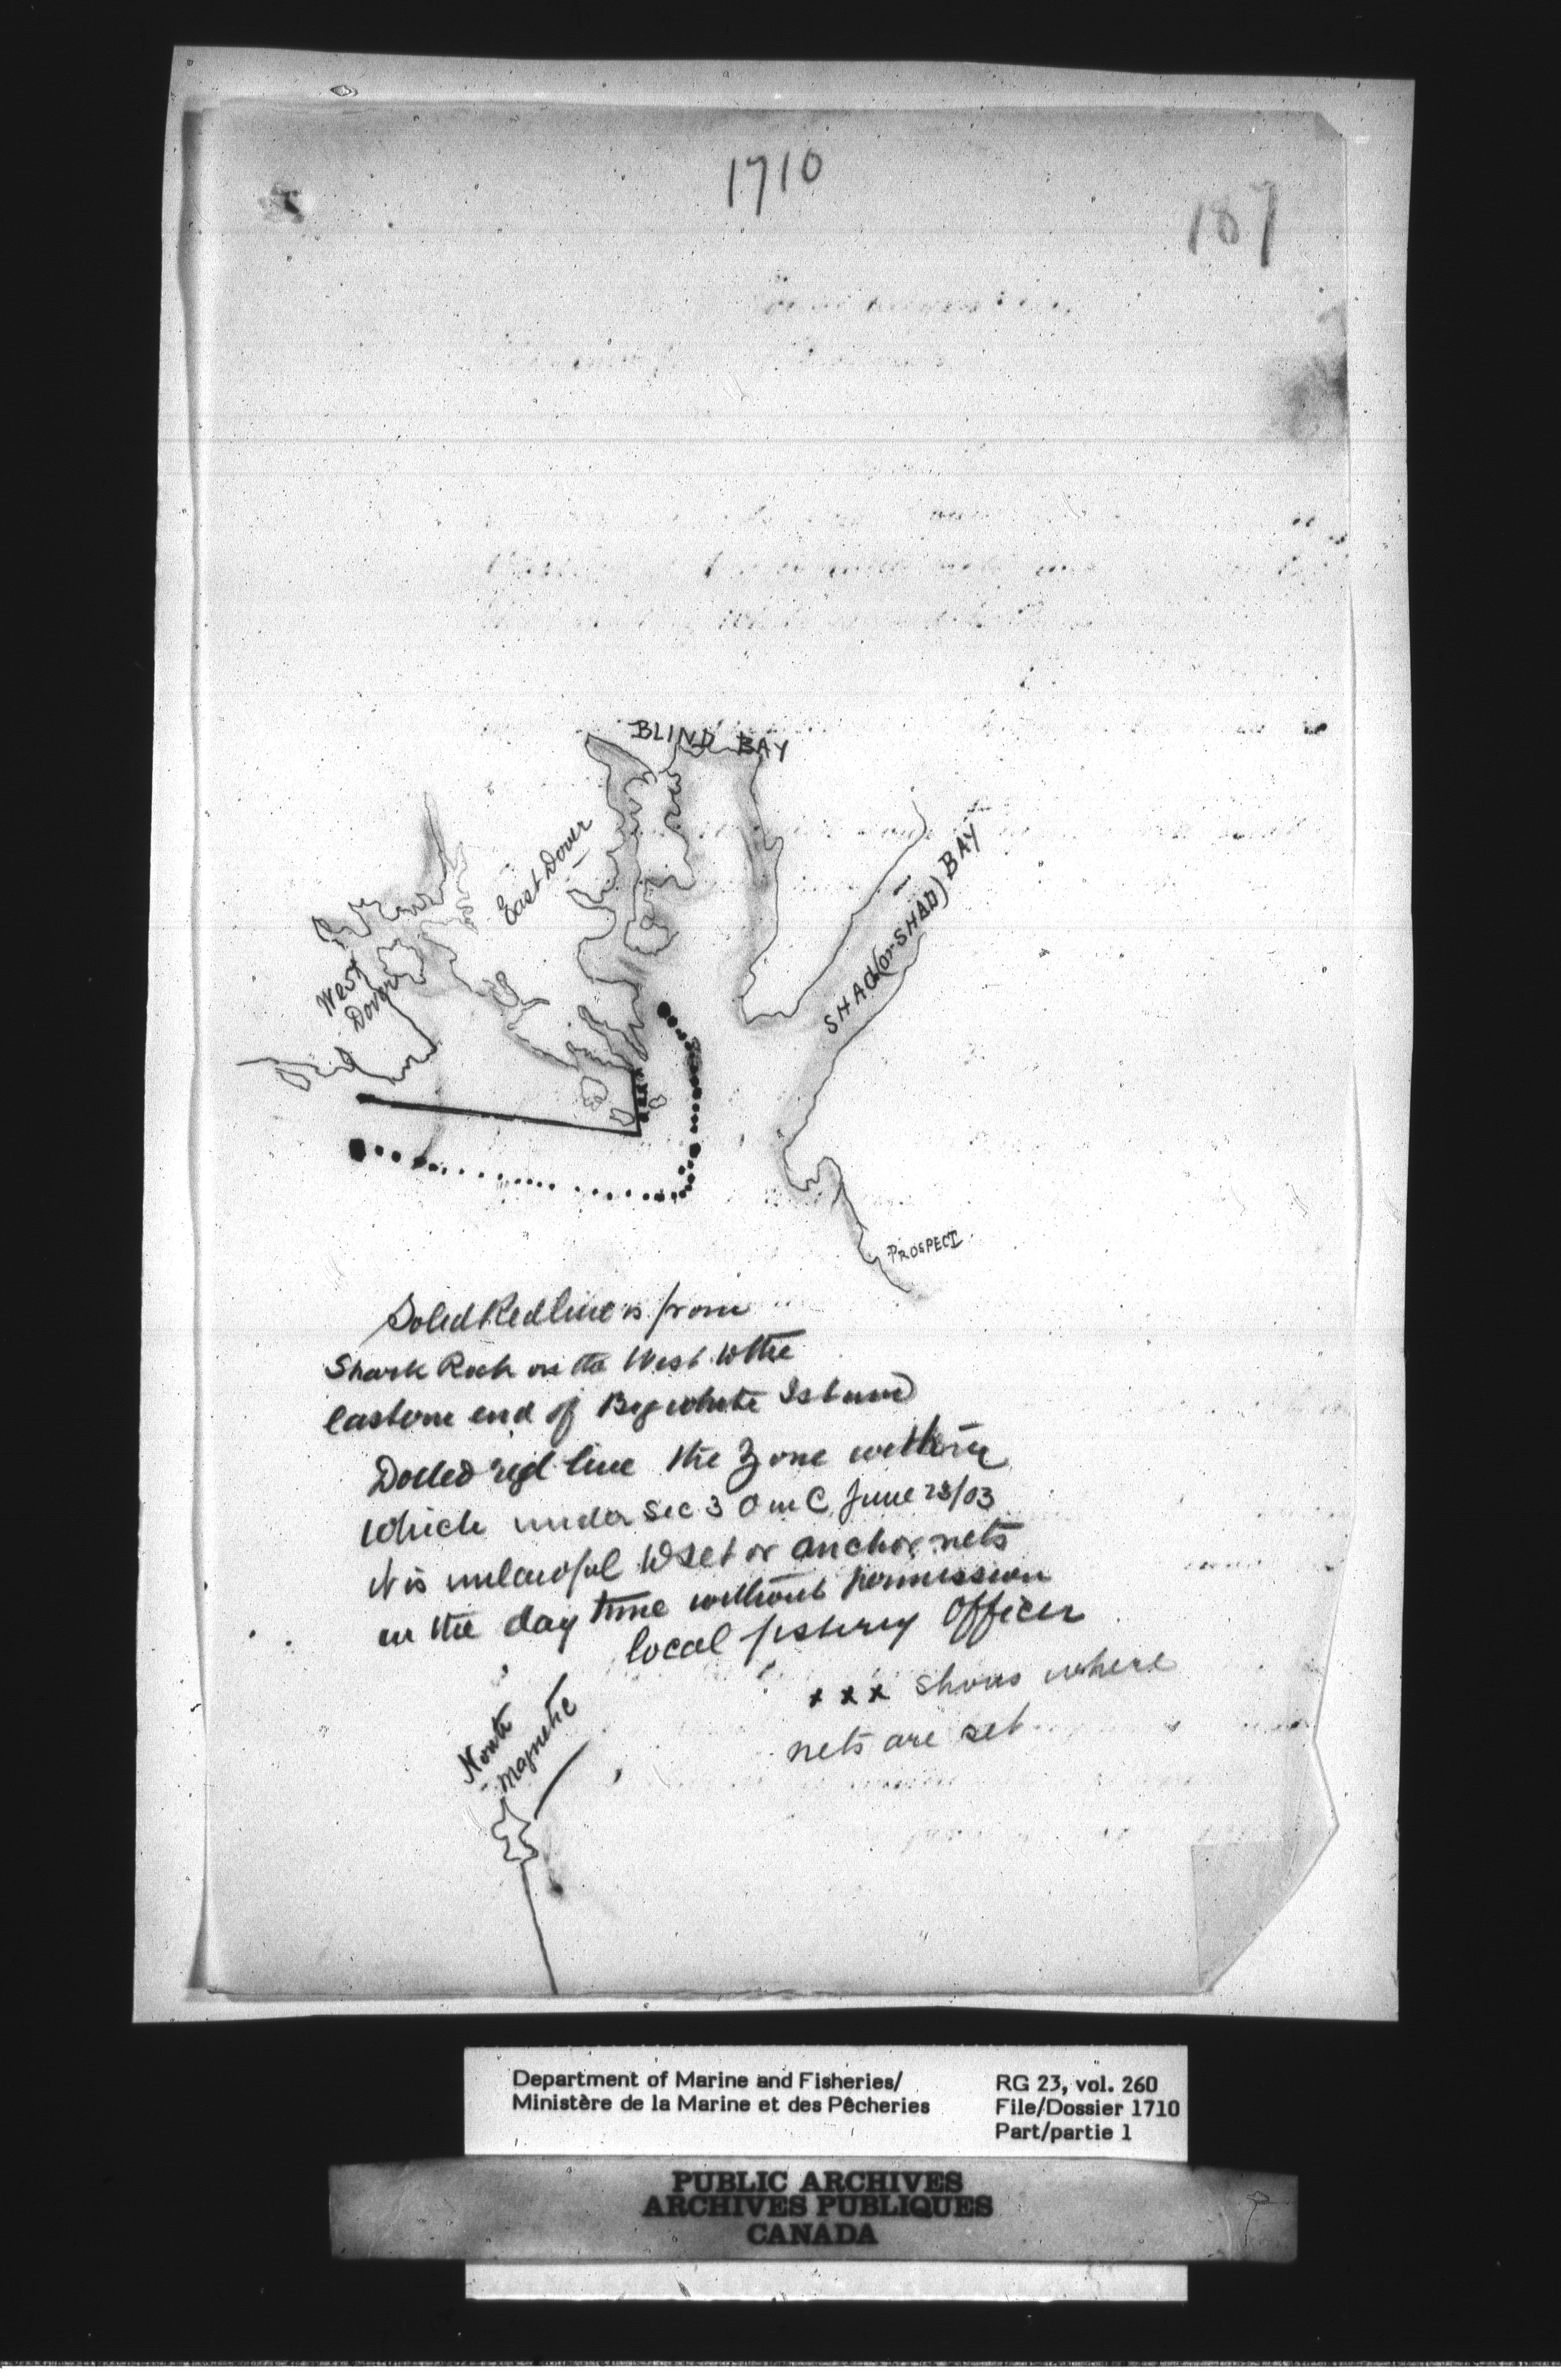 1710
187
BLIND BAY
East Dover
West
Dover
SHAG (or SHAD) BAY
PROSPECT
Solid Red line is from
Shark Rock on the West to the
Eastern end of Big white Island
Dotted red line the Zone within
which under Sec 3 O in C June 23/03
it is unlawful to set or anchor nets
in the day time without permission
local fishery Officer
x x x shows where
nets are set
North
magnetic
Department of Marine and Fisheries/
Ministère de la Marine et des Pêcheries
RG 23, vol. 260
File/Dossier 1710
Part/partie 1
PUBLIC ARCHIVES
ARCHIVES PUBLIQUES
CANADA